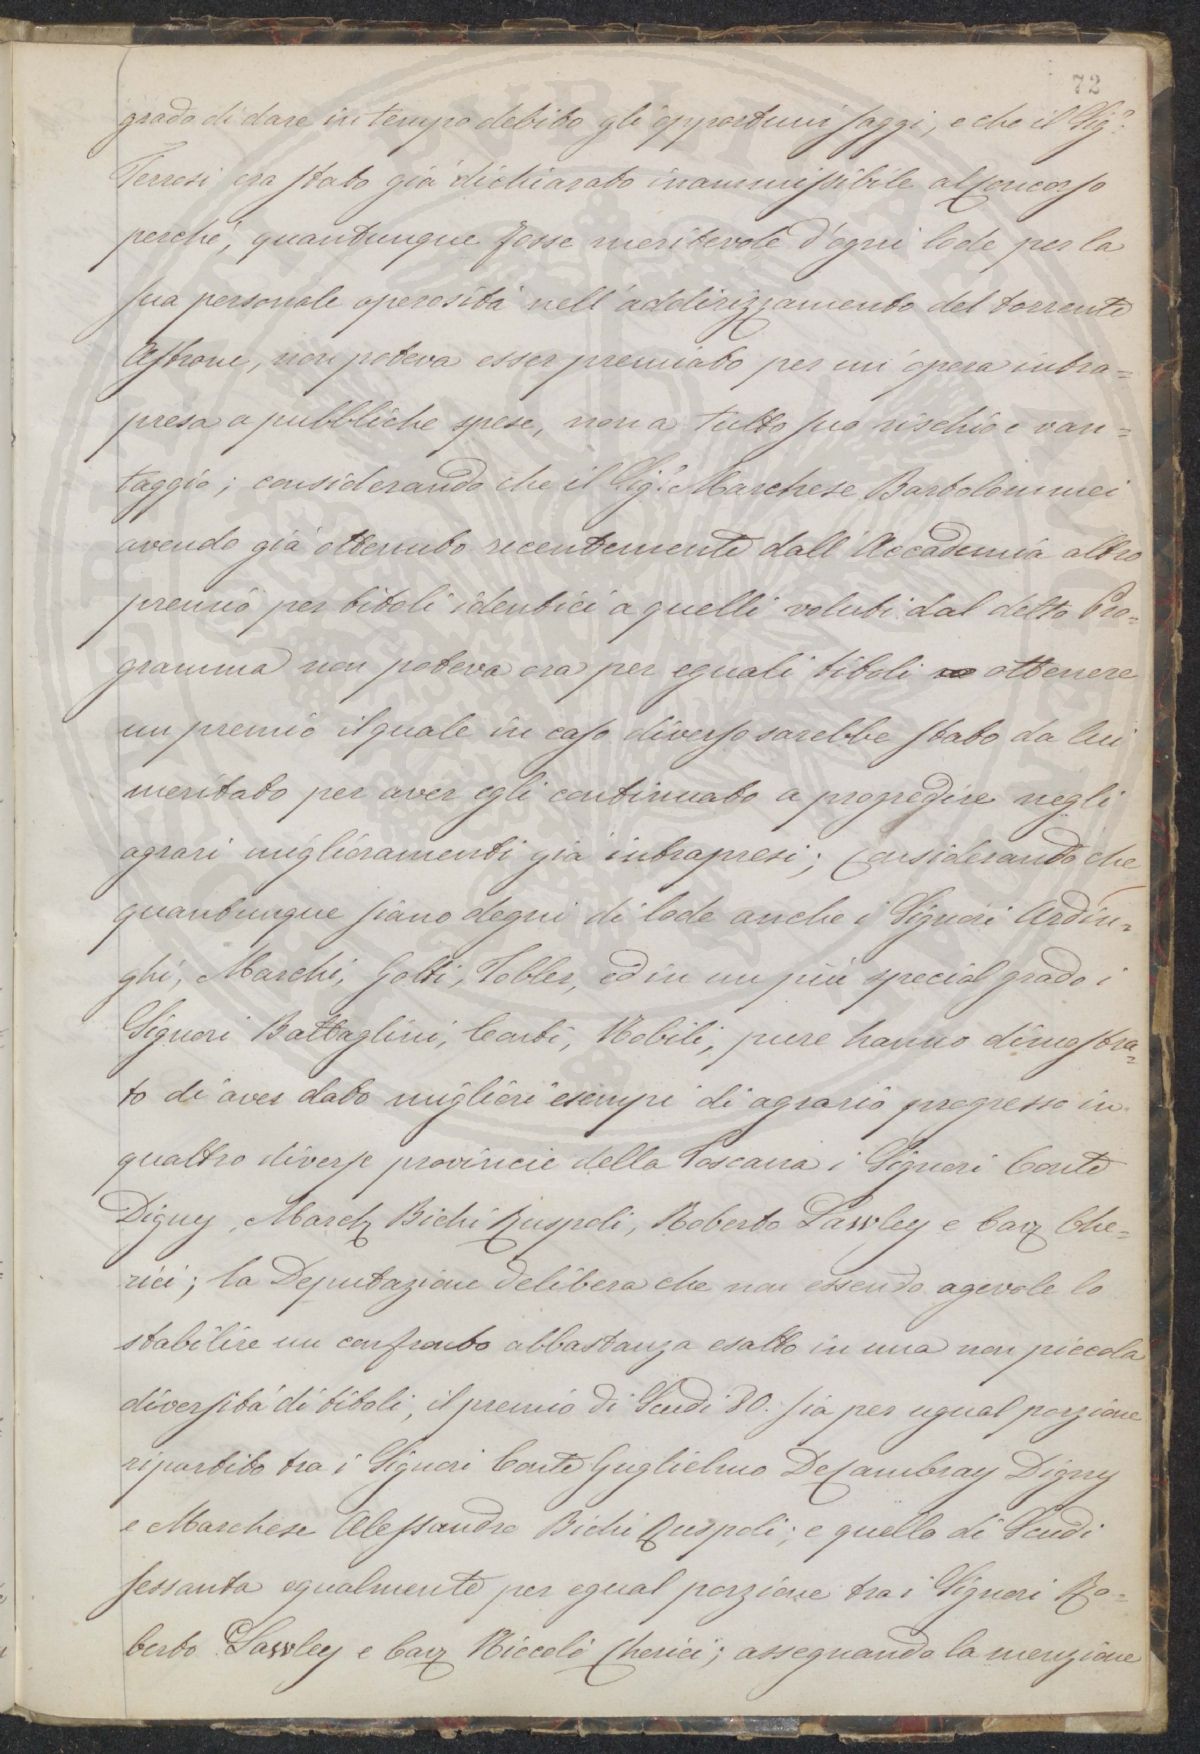 72
grado di dare in tempo debito gli opportuni saggi, e che il Sig.r
Terrosi era stato già dichiarato inammissibile al Concorso
perché, quantunque fosse meritevole d'ogni lode per la
sua personale operosità nell'addirizzamento del torrente
Astrone, non poteva esser premiato per un'opera intra=
presa a pubbliche spese, non a tutto suo rischio e van=
taggio; considerando che il Sig.r Marchese Bartolommei
avendo già ottenuto recentemente dall'Accademia altro
premio per titoli identici a quelli voluti dal detto Pro=
gramma non poteva ora per eguali titoli ottenere
un premio il quale in caso diverso sarebbe stato da lui
meritato per aver egli continuato a progredire negli
agrari miglioramenti già intrapresi; Considerando che
quantunque siano degni di lode anche i Signori Ardin=
ghi, Marchi, Gotti, Tobler, ed in un più special grado i
Signori Battaglini, Conti, Nobili, pure hanno dimostra=
to di aver dato migliori esempi di agrario progresso in
quattro diverse provincie della Toscana i Signori Conte
Digny, March Bichi Ruspoli, Roberto Lawley e Cav Che=
rici; la Deputazione delibera che non essendo agevole lo
stabilire un confronto abbastanza esatto in una non piccola
diversità di titoli, il premio di Scudi 80. sia per ugual porzione
ripartito tra i Signori Conte Guglielmo De Cambray Digny
e Marchese Alessandro Bichi Ruspoli; e quello di Scudi
sessanta egualmente per egual porzione tra i Signori Ro=
berto Lawley e Cav Niccolò Cherici; assegnando la menzione